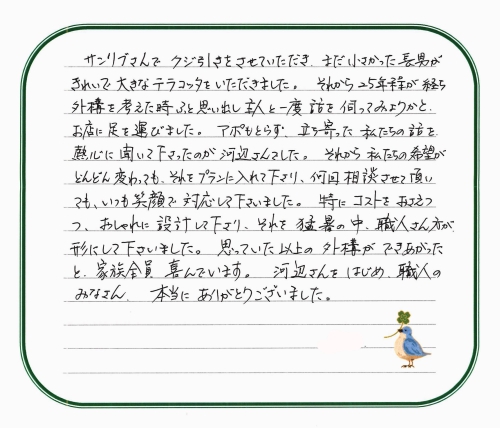 サンリブさんで クジ引きをさせていただき、まだ小さかった長男が
きれいで大きなテラコッタをいただきました。 それから25年程が経ち
外構を考えた時ふと思い出し 主人と一度 話を 伺ってみようかと、
お店に足を運びました。 アポもとらず、立ち寄った私たちの話を
熱心に聞いて下さったのが 河辺さんでした。 それから私たちの希望が
どんどん変わっても、それをプランに入れて下さり、何回 相談させて頂い
ても、いつも笑顔で 対応して下さいました。 特に コストを おさえつ
つ、おしゃれに 設計して下さり、それを 猛暑の中、職人さん方が
形にして下さいました。 思っていた以上の 外構が できあがった
と、家族全員 喜んでいます。 河辺さんを はじめ、職人の
みなさん、本当に ありがとうございました。